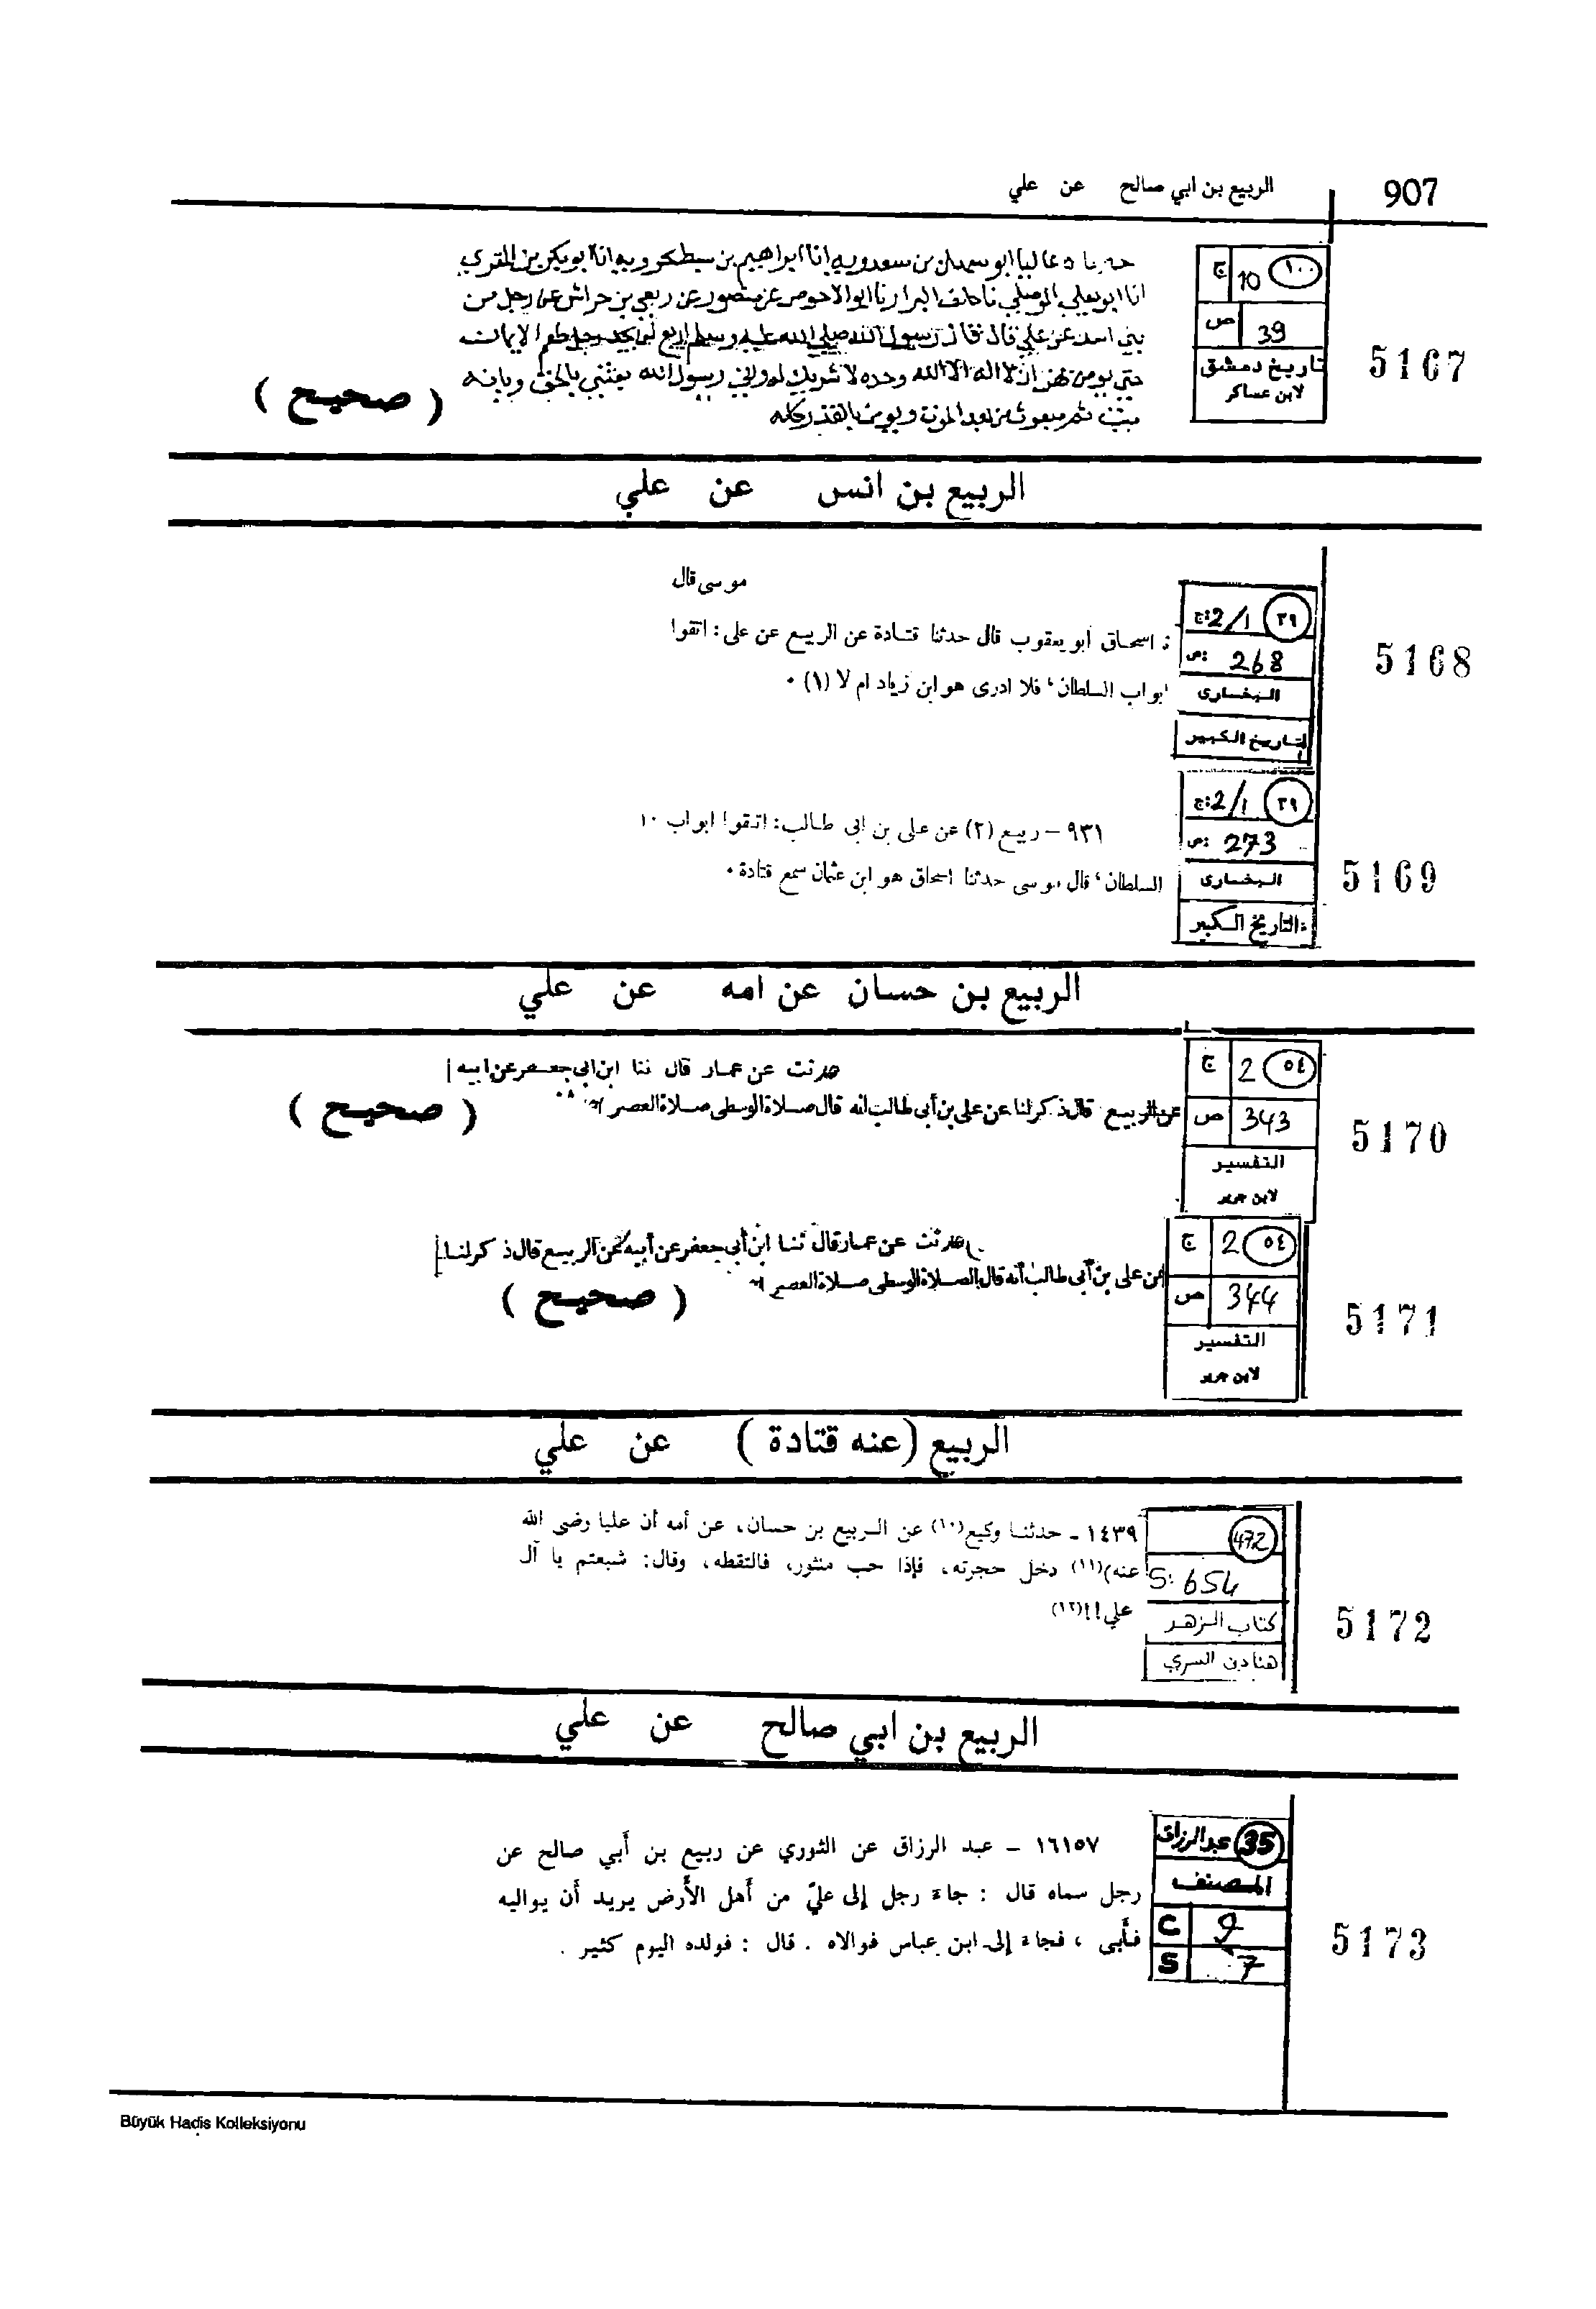 907
الربيع بن ابي صالح عن علي
5167
١٠٠ 10 ج
39 ص
تاريخ دمشق
لابن عساكر
انا ابراهيم بن انا ابو بكر بن المقري
انا ابو يعلي الموصلي نا خلف البزار نا ابو الاحوص عن منصور عن ربعي بن حراش عن رجل من
بني اسد عن علي قال قال رسول الله صلي الله عليه وسلم اربع لن يجد رجل طعم الايمان
حتي يومن بهن ان لا اله الا الله وحده لا شريك له واني رسول الله بعثني بالحق وبانه
ميت ثم مبعوث من بعد الموت ويومن بالقدر كله
( صحيح )
الربيع بن انس عن علي
5168
٣٩ 2/1 ج:
268 ص:
البخارى
التاريخ الكبير
موسى قال
اسحاق أبو يعقوب قال حدثنا قتادة عن الربيع عن على: اتقوا
ابواب السلطان، فلا ادرى هو ابن زياد ام لا (١) ٠
5169
٣٩ 2/1 ج:
273 ص:
البخارى
التاريخ الكبير
٩٣١ – ربيع (٢) عن على بن ابى طالب: اتقوا ابواب ١٠
السلطان، قال موسى حدثنا اسحاق هو ابن عثمان سمع قتادة ٠
الربيع بن حسان عن امه عن علي
5170
٥٤ 2 ج
343 ص
التفسير
لابن جرير
حدثت عن عمار قال ثنا ابن ابي جعفر عن ابيه
عن الربيع قال ذكر لنا عن على بن أبى طالب انه قال صلاة الوسطى صلاة العصر
( صحيح )
5171
٥٤ 2 ج
344 ص
التفسير
لابن جرير
حدثت عن عمار قال ثنا ابن أبى جعفر عن أبيه عن الربيع قال ذكر لنا
عن على بن أبى طالب أنه قال الصلاة الوسطى صلاة العصر
( صحيح )
الربيع (عنه قتادة ) عن علي
5172
472
S: 654
كتاب الزهد
هناد بن السري
١٤٣٩ - حدثنا وكيع(١٠) عن الربيع بن حسان، عن أمه أن عليا رضى الله
عنه)(١١) دخل حجرته، فإذا حب منثور، فالتقطه، وقال: شبعتم يا آل
علي!!(١٢)
الربيع بن ابي صالح عن علي
5173
35 عبد الرزاق
المصنف
C 9
S 7
١٦١٥٧ – عبد الرزاق عن الثوري عن ربيع بن أبي صالح عن
رجل سماه قال : جاءَ رجل إلى عليّ من أهل الأرض يريد أن يواليه
فأبى ، فجاءَ إلى ابن عباس فوالاه . قال : فولده اليوم كثير .
Büyük Hadis Kolleksiyonu